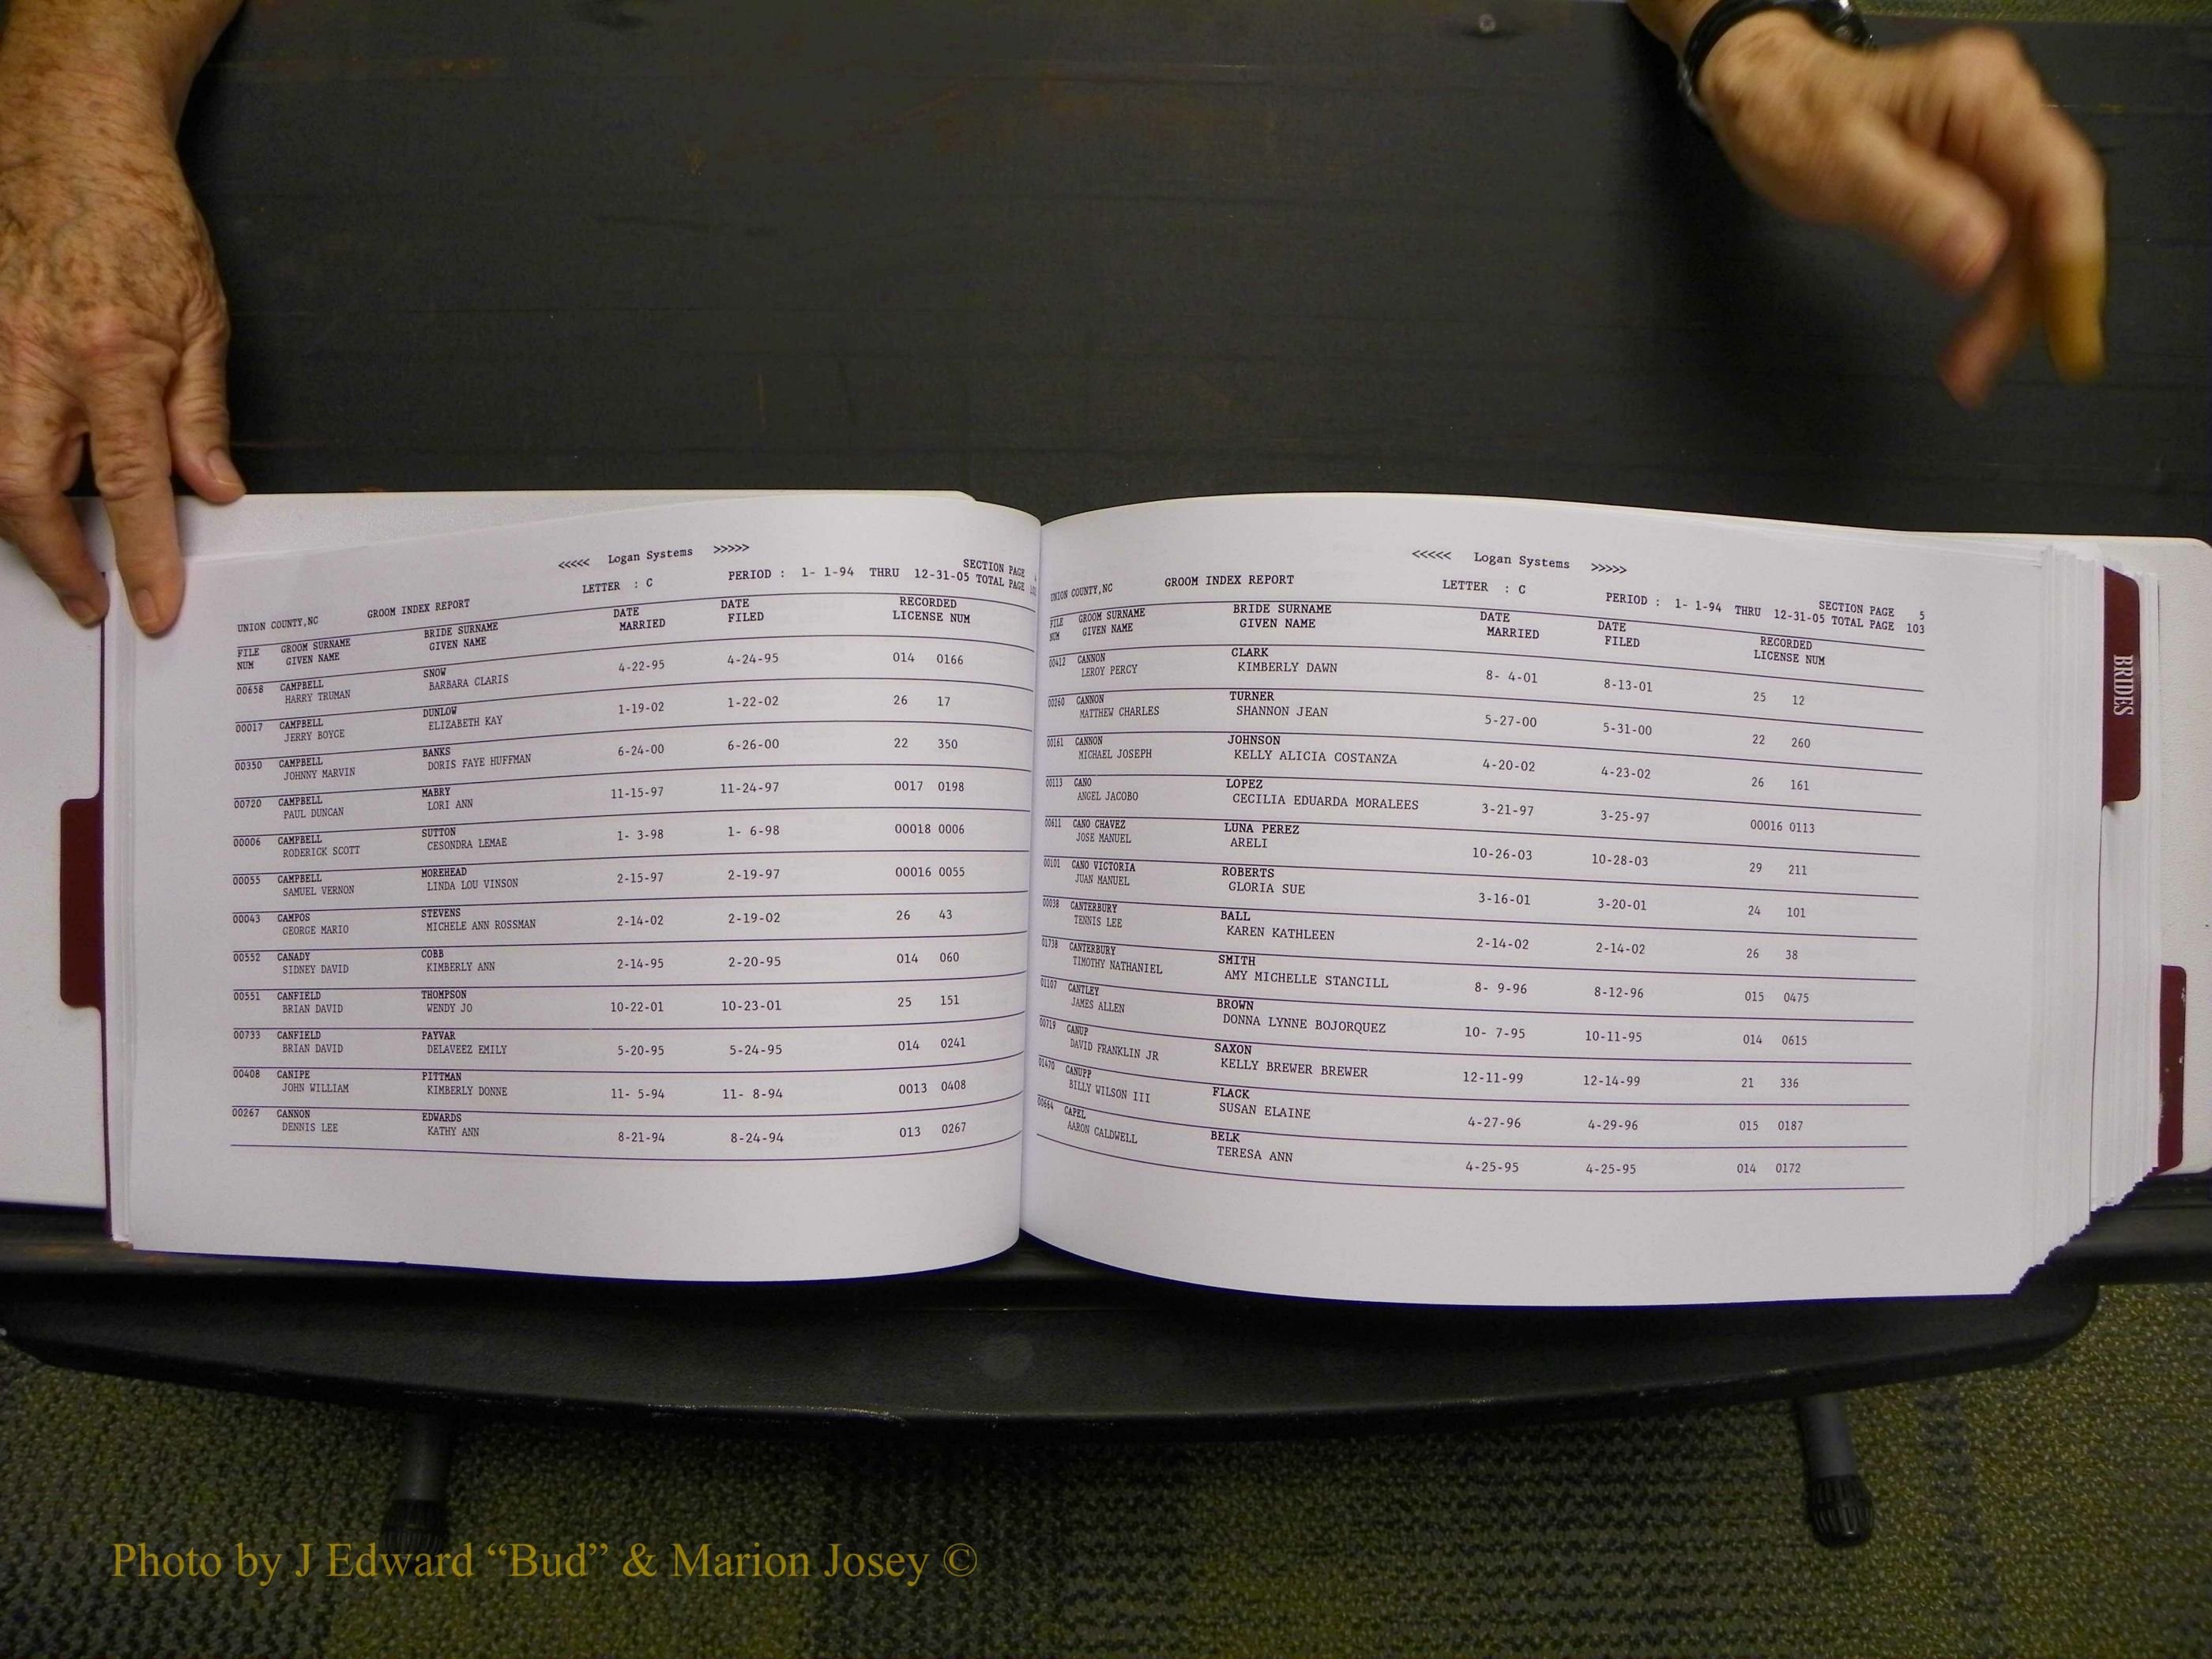 <<<<< Logan Systems >>>>>
SECTION PAGE
UNION COUNTY,NC GROOM INDEX REPORT LETTER : C PERIOD : 1- 1-94 THRU 12-31-05 TOTAL PAGE
FILE GROOM SURNAME BRIDE SURNAME DATE DATE RECORDED
NUM GIVEN NAME GIVEN NAME MARRIED FILED LICENSE NUM
00658 CAMPBELL SNOW 4-22-95 4-24-95 014 0166
HARRY TRUMAN BARBARA CLARIS
00017 CAMPBELL DUNLOW 1-19-02 1-22-02 26 17
JERRY BOYCE ELIZABETH KAY
00350 CAMPBELL BANKS 6-24-00 6-26-00 22 350
JOHNNY MARVIN DORIS FAYE HUFFMAN
00720 CAMPBELL MABRY 11-15-97 11-24-97 0017 0198
PAUL DUNCAN LORI ANN
00006 CAMPBELL SUTTON 1- 3-98 1- 6-98 00018 0006
RODERICK SCOTT CESONDRA LEMAE
00055 CAMPBELL MOREHEAD 2-15-97 2-19-97 00016 0055
SAMUEL VERNON LINDA LOU VINSON
00043 CAMPOS STEVENS 2-14-02 2-19-02 26 43
GEORGE MARIO MICHELE ANN ROSSMAN
00552 CANADY COBB 2-14-95 2-20-95 014 060
SIDNEY DAVID KIMBERLY ANN
00551 CANFIELD THOMPSON 10-22-01 10-23-01 25 151
BRIAN DAVID WENDY JO
00733 CANFIELD PAYVAR 5-20-95 5-24-95 014 0241
BRIAN DAVID DELAVEEZ EMILY
00408 CANIPE PITTMAN 11- 5-94 11- 8-94 0013 0408
JOHN WILLIAM KIMBERLY DONNE
00267 CANNON EDWARDS 8-21-94 8-24-94 013 0267
DENNIS LEE KATHY ANN
<<<<< Logan Systems >>>>>
SECTION PAGE 5
UNION COUNTY,NC GROOM INDEX REPORT LETTER : C PERIOD : 1- 1-94 THRU 12-31-05 TOTAL PAGE 103
FILE GROOM SURNAME BRIDE SURNAME DATE DATE RECORDED
NUM GIVEN NAME GIVEN NAME MARRIED FILED LICENSE NUM
00412 CANNON CLARK 8- 4-01 8-13-01 25 12
LEROY PERCY KIMBERLY DAWN
00260 CANNON TURNER 5-27-00 5-31-00 22 260
MATTHEW CHARLES SHANNON JEAN
00161 CANNON JOHNSON 4-20-02 4-23-02 26 161
MICHAEL JOSEPH KELLY ALICIA COSTANZA
00113 CANO LOPEZ 3-21-97 3-25-97 00016 0113
ANGEL JACOBO CECILIA EDUARDA MORALEES
00611 CANO CHAVEZ LUNA PEREZ 10-26-03 10-28-03 29 211
JOSE MANUEL ARELI
00101 CANO VICTORIA ROBERTS 3-16-01 3-20-01 24 101
JUAN MANUEL GLORIA SUE
00038 CANTERBURY BALL 2-14-02 2-14-02 26 38
TENNIS LEE KAREN KATHLEEN
01738 CANTERBURY SMITH 8- 9-96 8-12-96 015 0475
TIMOTHY NATHANIEL AMY MICHELLE STANCILL
01107 CANTLEY BROWN 10- 7-95 10-11-95 014 0615
JAMES ALLEN DONNA LYNNE BOJORQUEZ
00719 CANUP SAXON 12-11-99 12-14-99 21 336
DAVID FRANKLIN JR KELLY BREWER BREWER
01470 CANUPP FLACK 4-27-96 4-29-96 015 0187
BILLY WILSON III SUSAN ELAINE
00664 CAPEL BELK 4-25-95 4-25-95 014 0172
AARON CALDWELL TERESA ANN
BRIDES
Photo by J Edward “Bud” & Marion Josey ©